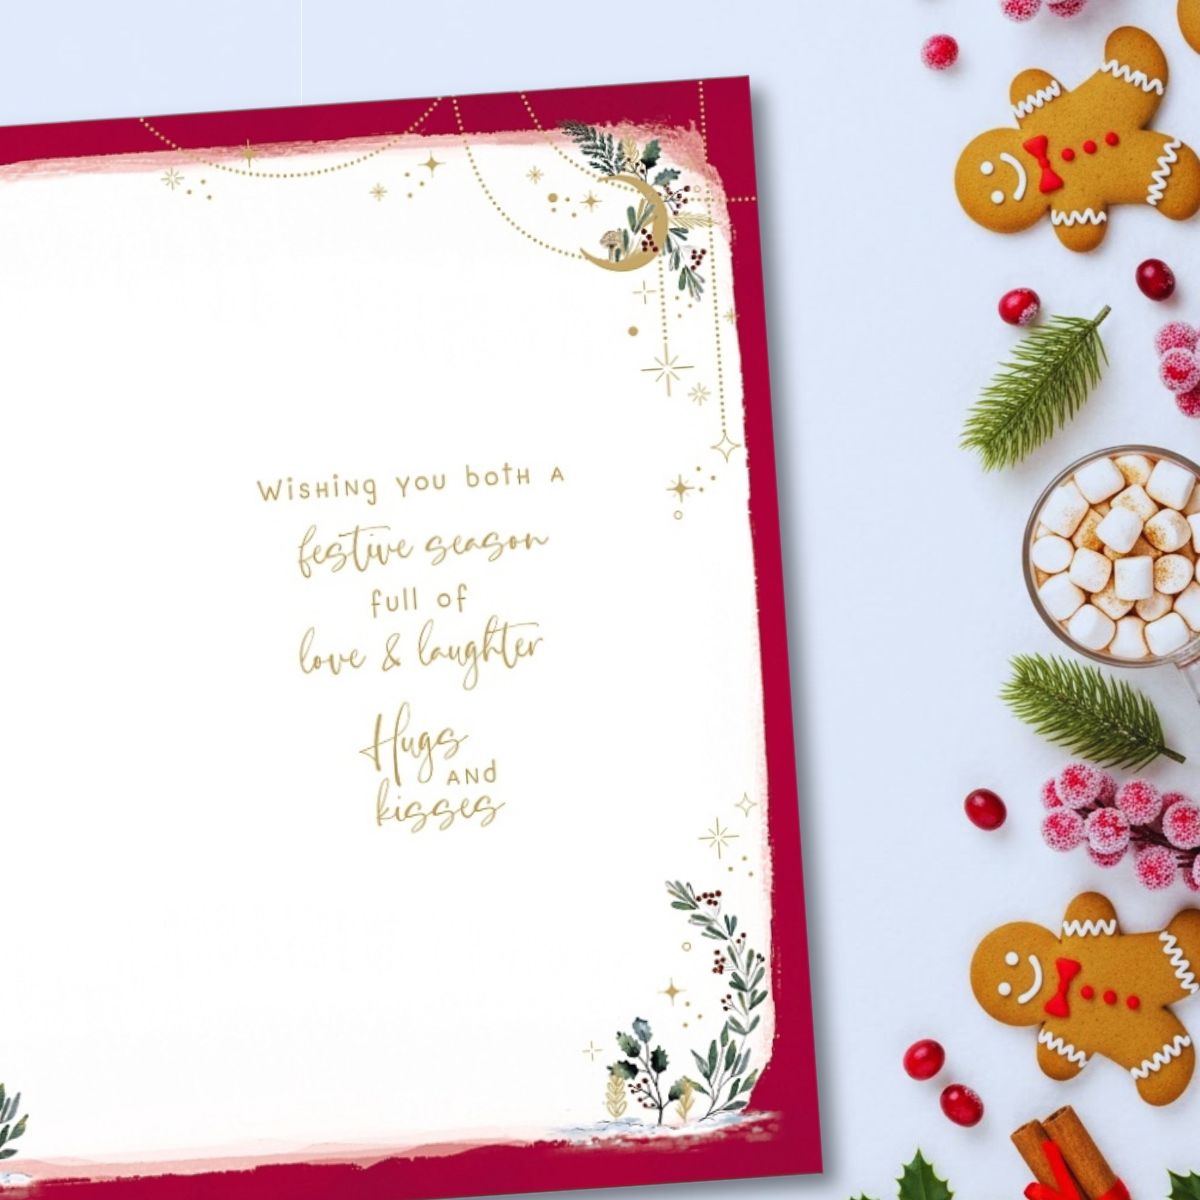 Wishing you both a
festive season
full of
love & laughter
Hugs
and
kisses